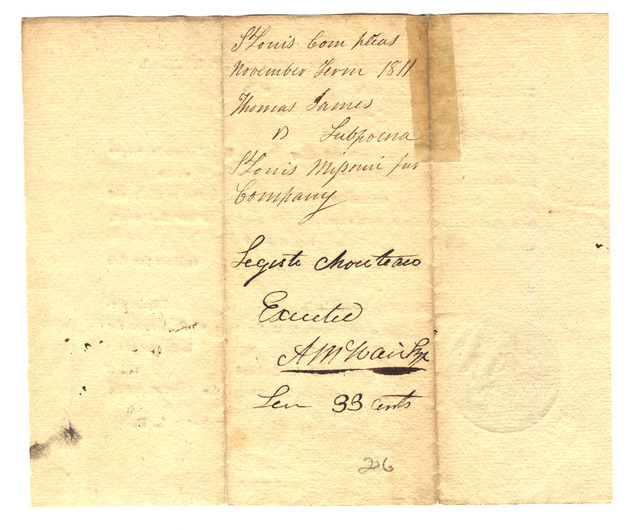 St Louis Com pleas
November Term 1811
Thomas James
vs Subpoena
St Louis Missouri fur
Company
Legisti Chouteau
Executed
A McNair Shff
Ser 33 Cents
26